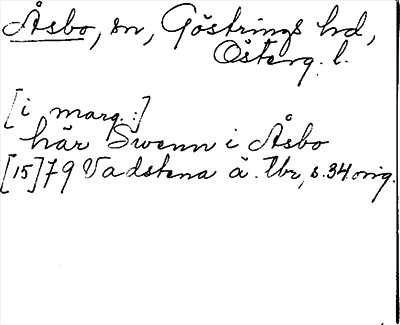 Åsbo, sn, Göstrings hd,
Österg. l.
[i marg.:]
här Swenn i Åsbo
[15]79 Vadstena ä. Tbr, s. 34 orig.